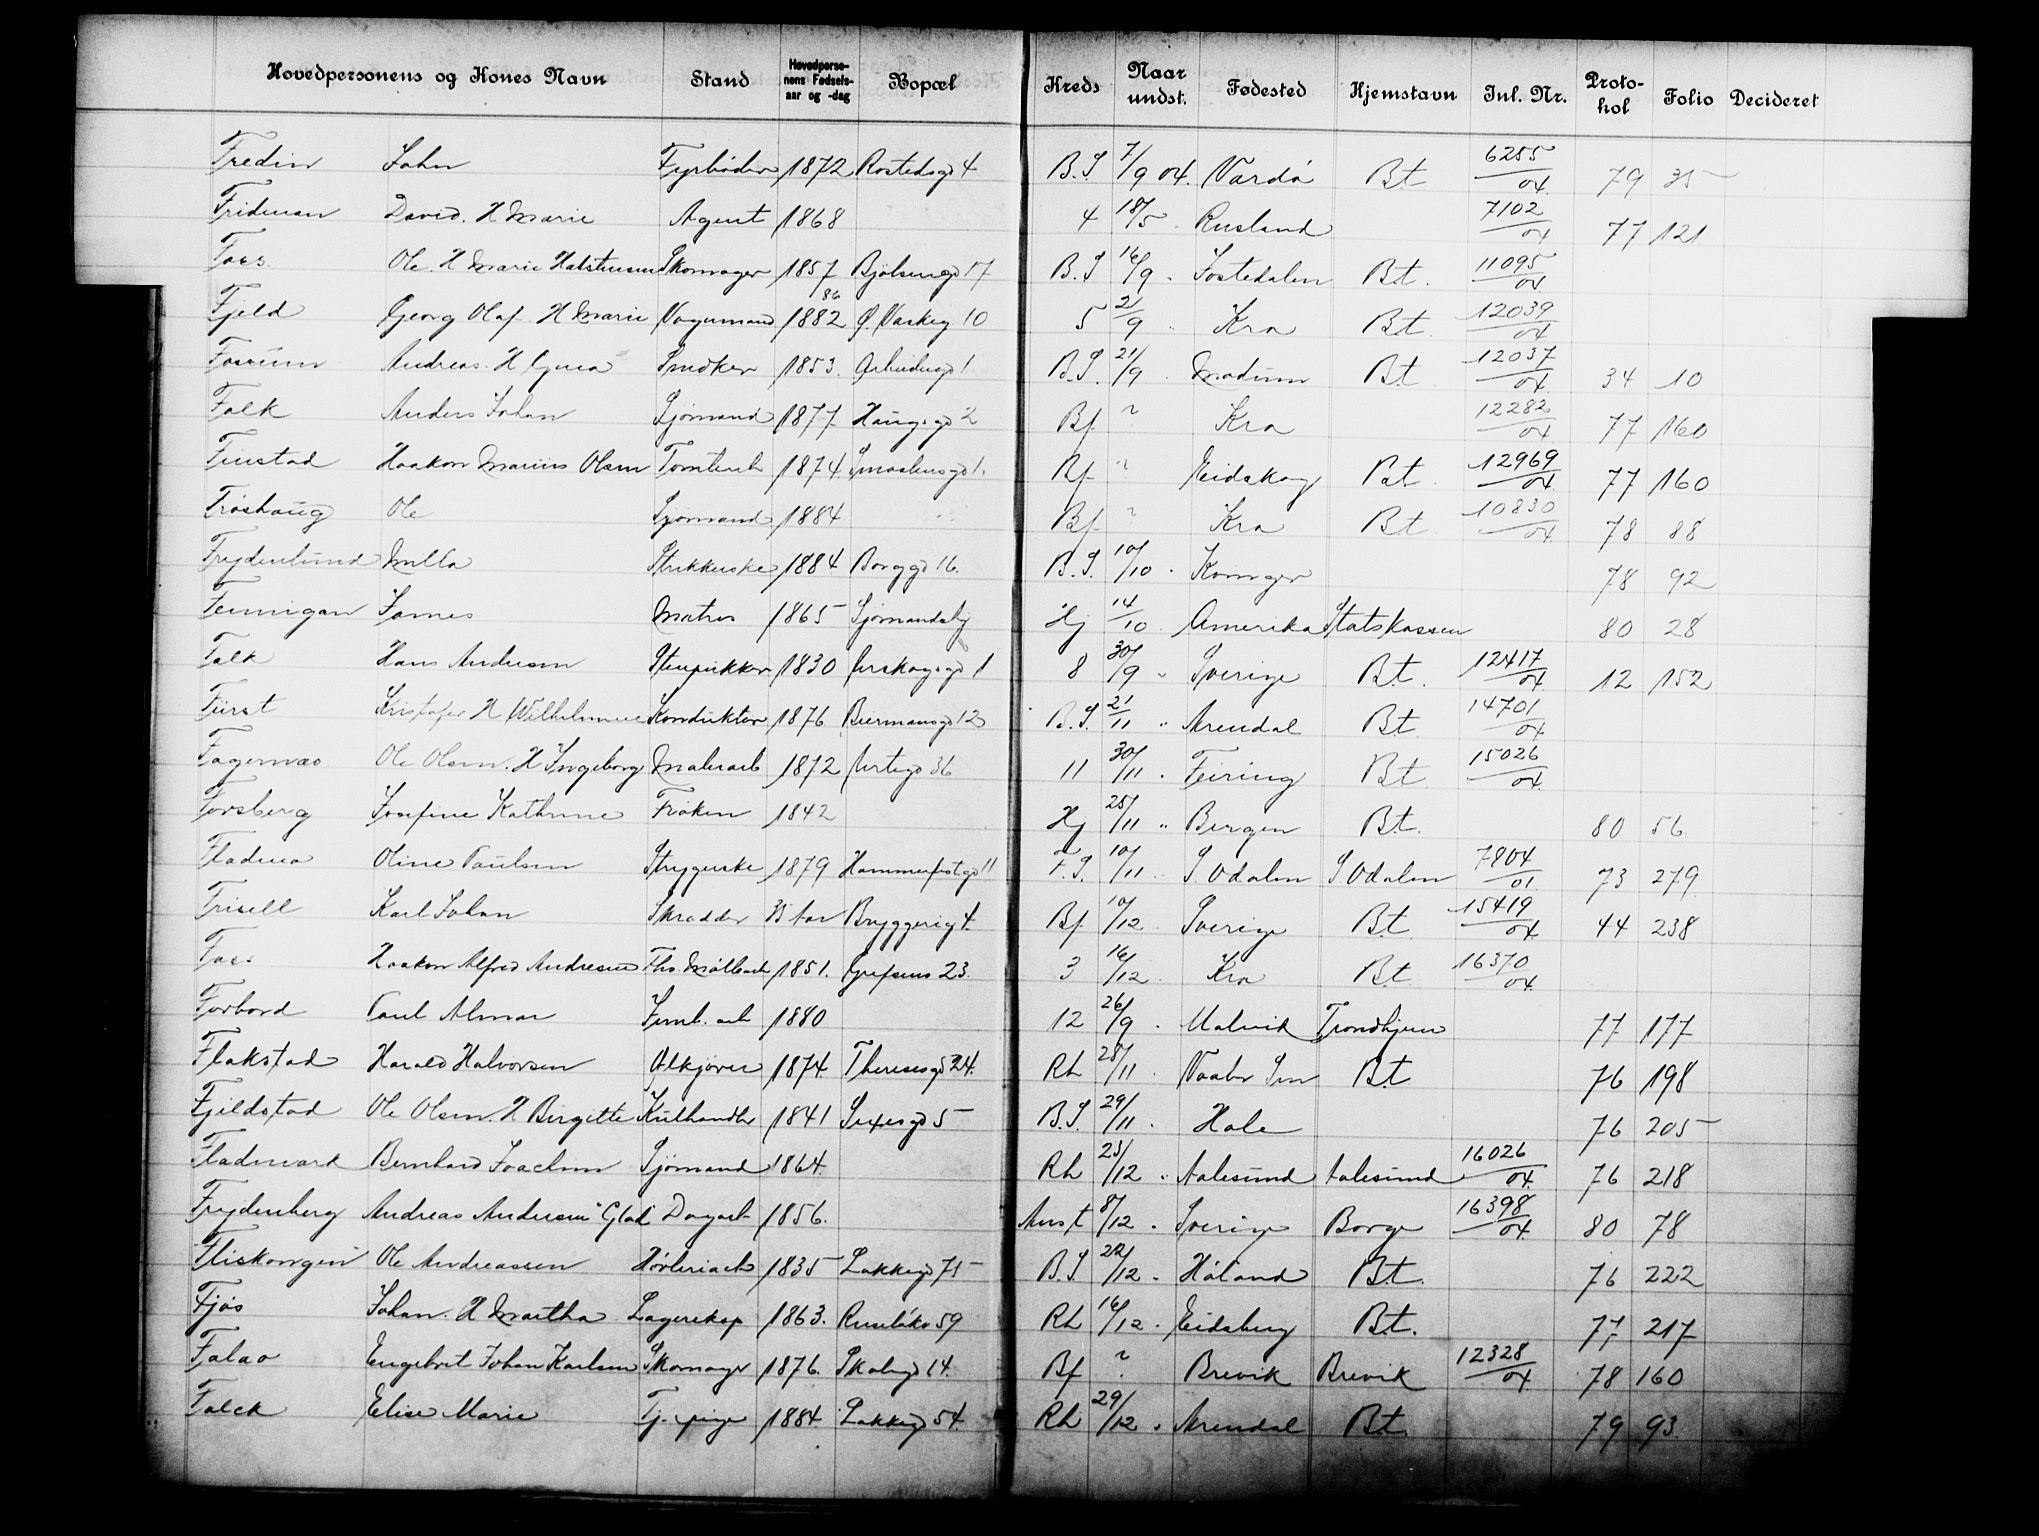 Hovedpersonens og Kones Navn Stand Hovedpersonens Fødselsaar og -dag Bopæl Kreds Naar undst. Fødested Hjemstavn Inl. Nr. Protokol Folio Decideret
Fredin John Fyrbøder 1872 Rostedsgd 4 B.S. 7/9 04. Vardø Bt 6255/04 79 35
Fridman David. H Marie Agent 1868 4 18/5 Rusland 7102/04 77 121
Foss Ole. H Marie Halstensen Skomager 1857 Bjølsengd 17 B.S 16/9 Jostedalen Bt. 11095/04
Fjeld Georg Olaf. H Marie Vognmand 1882 86 10 5 21/9 Kra Bt. 12039/04
Fossum Andreas. H Snedker 1853. Arbeidergd 1 B.S. 21/9 Modum Bt 12037/04 34 10
Falk Anders Johan Sjømand 1877 Haugsgd 2 Bf. Kra 12282/04 77 160
Finstad Haakon Marius Olsen Tomtearb 1874. Smaalensgd 1. Bf. Eidskog Bt 12969/04 77 160
Frøshaug Ole Sjømand 1884 Bf. Kra Bt 10830/04 78 88
Frydenlund Milla Strikkerske 1884 Borggd 16. B.S. 10/10 Konger 78 92
Fennigan James Matros 1865 Sjømandshj Hj 14/10 Amerika Statskassen 80 28
Falk Hans Andersen Stenpikker 1830 Aurskogsgd 1 8 30/9 Sverige Bt. 12417/04 12 152
Fürst Kristofer H Wilhelmine Konduktør 1876 Biermansgd 12 B.S. 21/11 Arendal Bt 14701/04
Fagernæs Ole Olsen. H Ingeborg Malerarb 1872 36 11 30/11 Feiring Bt 15026/04
Forsberg Josefine Kathrine Frøken 1842 Hj 25/11 Bergen Bt. 80 56
Fladmo Oline Paulsen Strygerske 1879 Hammerfestgd 11 F.S. 10/11 S. Odalen S Odalen 7804/01 73 279
Frisell Karl Johan Skrædder 35 aar Bryggerig 4. Bf. 10/12 Sverige Bt. 15419/04 44 238
Foss Haakon Alfred Andresen 1851. Grefsens 23. 3 16/12 Kra Bt 16370/04
Forbord Paul Almar Jernb. arb 1880 12 26/9 Malvik Trondhjem 77 177
Flakstad Harald Halvorsen Ølkjører 1874. Theresesgd 24. Rh 28/11 Vaaler Bt 76 198
Fjeldstad Ole Olsen. H Birgitte Kulhandler 1841 Sexesgd 5 B.S. 29/11 Hole 76 205
Flademark Bernhard Joachim Sjømand 1864. Rh 23/12 Aalesund Aalesund 16026/04 76 218
Frydenberg Andreas Andersen "Glad" Dagarb 1856. Anst 8/12 Sverige Borge 16398/04 80 78
Fliskongen Ole Andreassen Høvleriarb 1835 Lakkegd 75 B.S. 22/12 Høland Bt. 76 222
Fjøs Johan. H Martha Lagerexp 1863. Ruseløkv 59 Rh 16/12 Eidsberg Bt. 77 217
Falao Engebret Johan Karlsen Skomager 1876. Skolegd 14. Bf ? Brevik Brevik 12328/04 78 160
Falck Elise Marie Tj. pige 1884. Lakkegd 54. Rh 29/12 Arendal Bt 79 93.